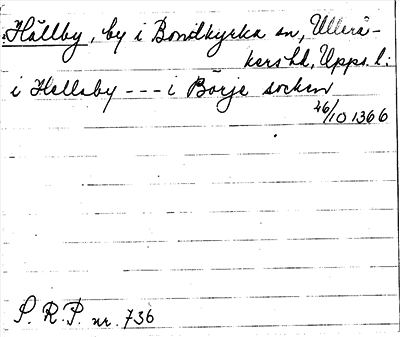 Hällby, by i Bondkyrka sn, Ullerå-
kers hd, Upps. l.:
i Hellaby --- i Börje socken
26/10 1366
S. R. P. nr. 736